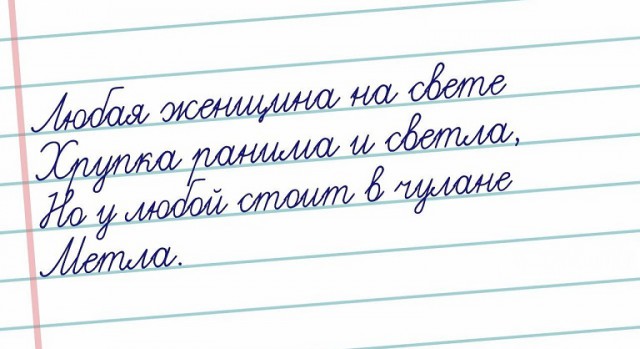 Любая женщина на свете
Хрупка ранима и светла,
Но у любой стоит в чулане
Метла.